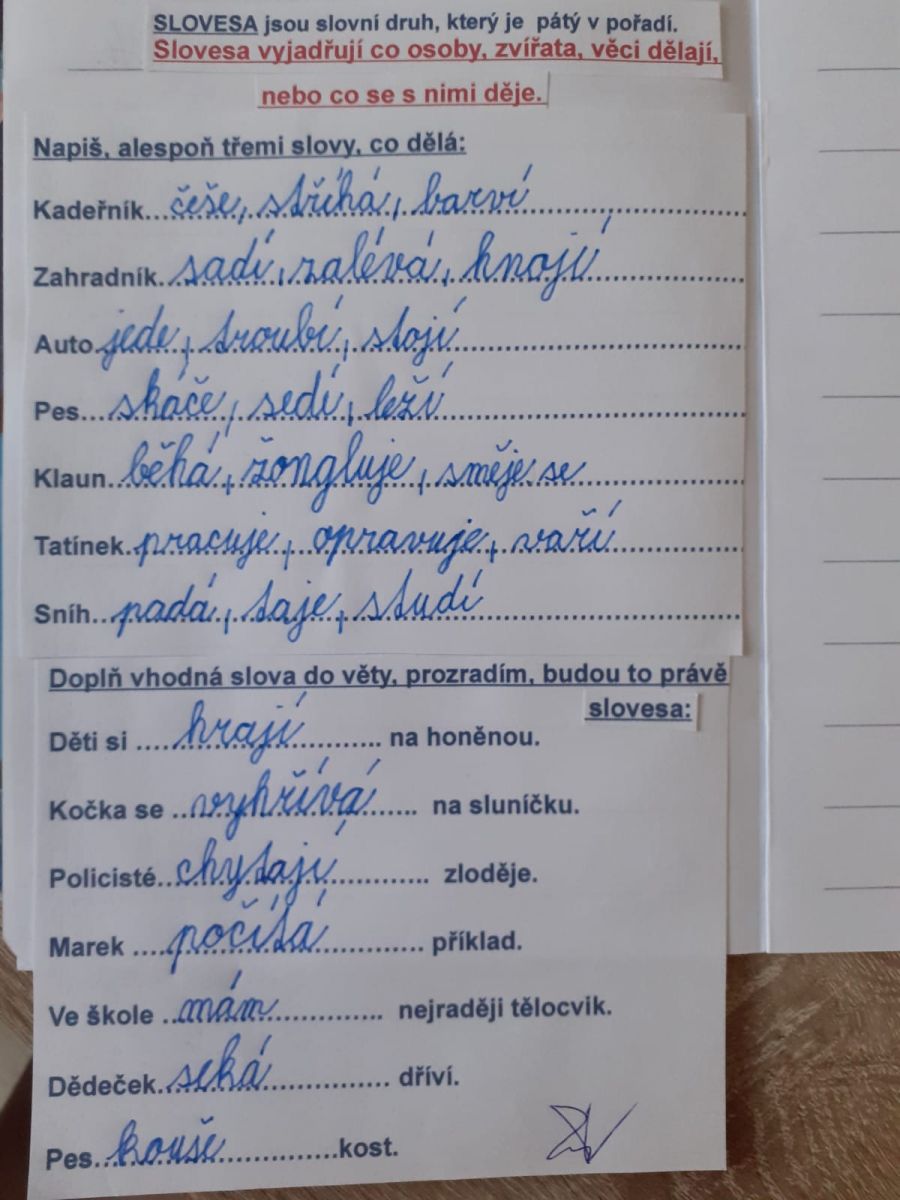 SLOVESA jsou slovní druh, který je pátý v pořadí.
Slovesa vyjadřují co osoby, zvířata, věci dělají,
nebo co se s nimi děje.
Napiš, alespoň třemi slovy, co dělá:
Kadeřník...češe, stříhá, barví
Zahradník. sadí, zalévá, hnojí
Auto. jede, troubí, stojí
Pes... skáče, sedí, leží
Klaun.. běhá, žongluje, směje se
Tatínek. pracuje, opravuje, vaří
Sníh.. padá, taje, studí
Doplň vhodná slova do věty, prozradím, budou to právě
slovesa:
Děti si ..... hrají ........... na honěnou.
Kočka se .. vyhřívá ...... na sluníčku.
Policisté.. chytají ............. zloděje.
Marek .... počítá .............. příklad.
Ve škole .. mám .............. nejraději tělocvik.
Dědeček. seká ............... dříví.
Pes... kouše ...............kost.